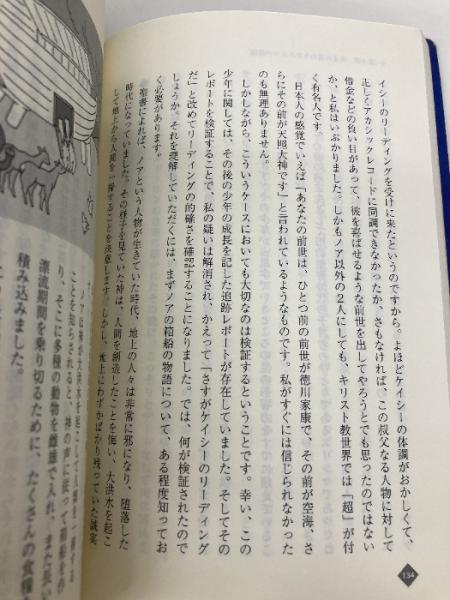 イシーのリーディングを受けに来たというのですから。よほどケイシーの体調がおかしくて、
正しくアカシックレコードに同調できなかったか、さもなければ、この叔父なる人物に対して
借金などの負い目があって、彼を喜ばせるような前世を出してやろうとでも思ったのではない
か、と私はいぶかりました。しかもノア以外の2人にしても、キリスト教世界では「超」が付
く有名人です。
日本人の感覚でいえば「あなたの前世は、ひとつ前の前世が徳川家康で、その前が空海、さ
らにその前が天照大神です」と言われているようなものです。私がすぐには信じられなかった
のも無理ありません。
しかしながら、こういうケースにおいても大切なのは検証するということです。幸い、この
少年に関しては、その後の少年の成長を記した追跡レポートが存在していました。そしてその
レポートを検証することで、私の疑いは解消され、かえって「さすがケイシーのリーディング
だ」と改めてリーディングの的確さを確認することになりました。では、何が検証されたので
しょうか。それを理解していただくには、まずノアの箱船の物語について、ある程度知ってお
く必要があります。
聖書によれば、ノアという人物が生きていた時代、地上の人々は非常に邪になり、堕落した
時代になっていました。その様子を見ていた神は、人間を創造したことを悔い、大洪水を起こ
して地上から人間を一掃することを決意します。しかし、地上にわずかばかり残っていた誠実
ノアは神が大洪水を起こして人類を一掃する
ことを知らされると、神の声に従って箱船を作
り、そこに多種の動物を雌雄で入れ、また長い
漂流期間を乗り切るために、たくさんの食糧
積み込みました。
134